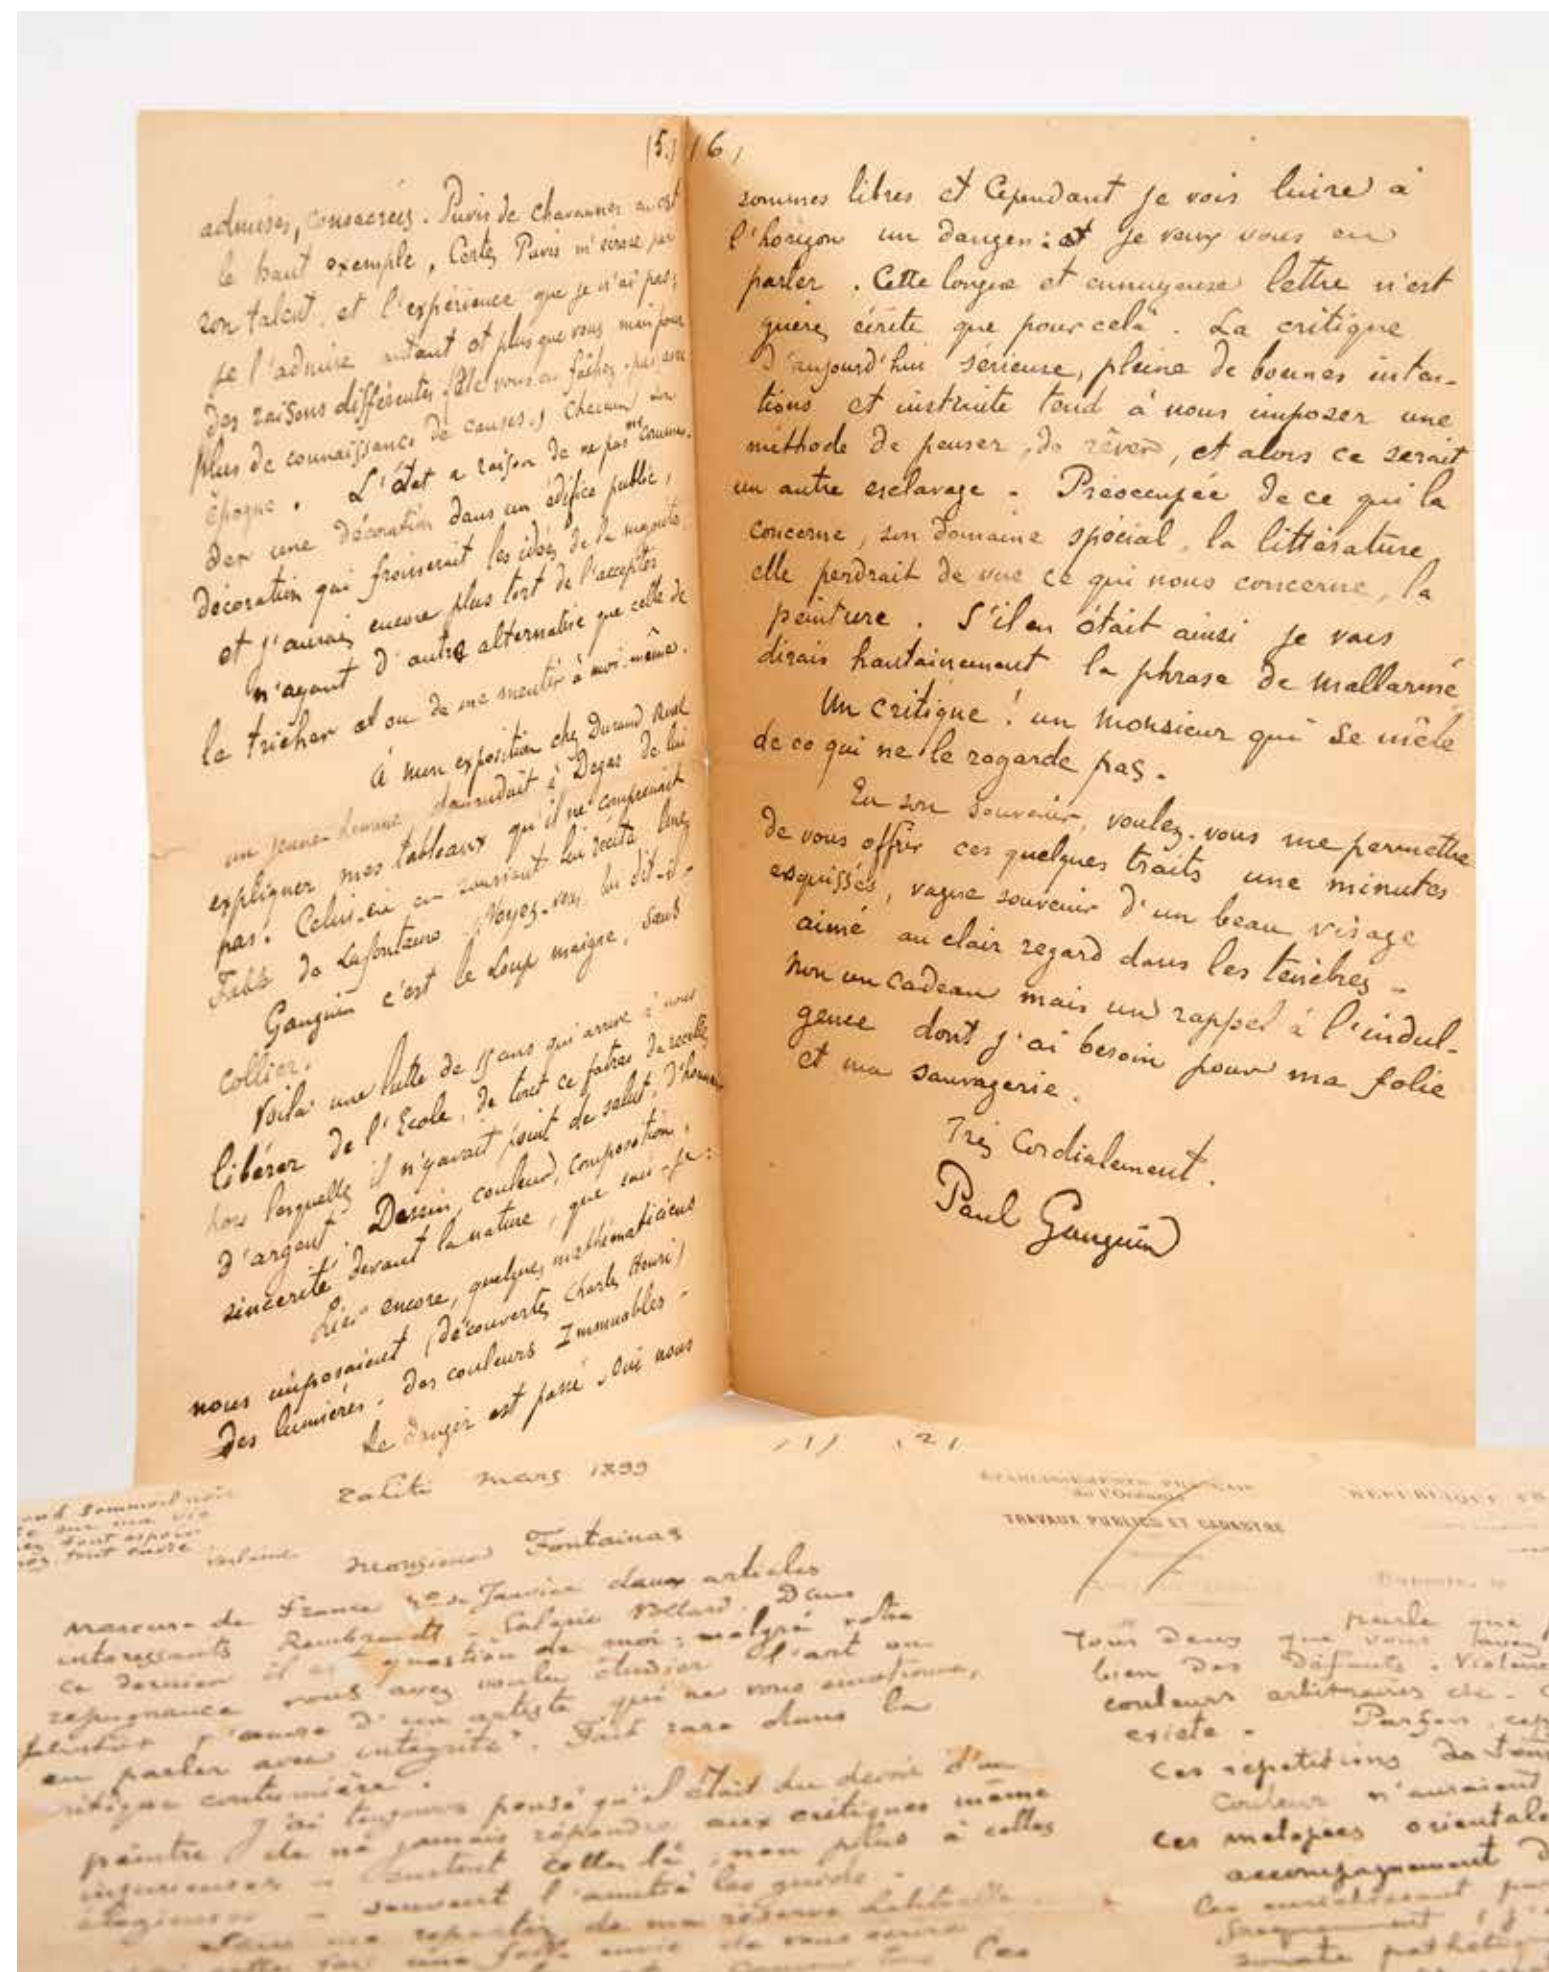 (5.)
admises, consacrées. Puvis de Chavannes en est
le haut exemple, Certes Puvis m'écrase par
son talent, et l'expérience que je n'ai pas;
je l'admire autant et plus que vous mais pour
des raisons différentes (Ne vous en fâchez pas avec
plus de connaissance de causes.) Chacun son
époque. L'état a raison de ne pas me comman-
der une décoration dans un édifice public,
décoration qui froisserait les idées de la majorité
et j'aurais encore plus tort de l'accepter
n'ayant d'autre alternative que celle de
le tricher et ou de me mentir à moi-même.
à mon exposition chez Durand Ruel
un jeune homme demandait à Degas de lui
expliquer mes tableaux qu'il ne comprenait
pas. Celui-ci en souriant lui récita une
Fable de Lafontaine. Voyez-vous, lui dit-il -
Gauguin c'est le Loup maigre, sans
collier.
Voilà une lutte de 15 ans qui arrive à nous
libérer de l'Ecole, de tout ce fatras de recettes
hors lesquelles il n'y avait point de salut, d'honneur
d'argent. Dessin, couleur, composition,
sincerité devant la nature, que sais-je:
Hier encore, quelques mathématiciens
nous imposaient (découvertes Charles Henri)
des lumières, des couleurs Immuables -
Le danger est passé. Oui nous
(6)
sommes libres et Cependant je vois luire à
l'horizon un danger: et je veux vous en
parler. Cette longue et ennuyeuse lettre n'est
guère écrite que pour celà. La critique
d'aujourd'hui sérieuse, pleine de bonnes inten-
tions et instruite tend à nous imposer une
méthode de penser, de rêver, et alors ce serait
un autre esclavage. Préoccupée de ce qui la
concerne, son domaine spécial, la littérature,
elle perdrait de vue ce qui nous concerne, la
peinture. S'il en était ainsi je vous
dirais hautainement la phrase de Mallarmé
Un critique! un monsieur qui se mêle
de ce qui ne le regarde pas.
En son souvenir, voulez-vous me permettre
de vous offrir ces quelques traits une minutes
esquissés, vague souvenir d'un beau visage
aimé au clair regard dans les ténèbres -
non un cadeau mais un rappel à l'indul-
gence dont j'ai besoin pour ma folie
et ma sauvagerie.
Très Cordialement.
Paul Gauguin
(1)
Tahiti mars 1899
sommeil noir
sur ma vie
tout espoir
tout envie
Verlaine
Monsieur Fontainas
Mercure de France Janvier deux articles
interessants Rembrandt - Galerie Vollard. Dans
ce dernier il est question de moi; malgré votre
repugnance vous avez voulu étudier l'art ou
l'œuvre d'un artiste qui ne vous emotionne,
en parler avec intégrité. Fait rare dans la
critique coutumière.
J'ai toujours pensé qu'il était du devoir d'un
peintre de ne jamais répondre aux critiques même
injurieuses - surtout celles là; non plus à celles
élogieuses - souvent l'amitié les guide.
Sans me repartir de ma réserve habituelle
une folle envie de vous écrire
(2)
ETABLISSEMENTS FRANÇAIS
de l'Océanie
TRAVAUX PUBLICS ET CADASTRE
REPUBLIQUE
parle que
Tous deux que vous avez
bien des défauts. Violence
couleurs arbitraires etc.
existe - Parfois
Ces répétitions de tons
couleur n'auraient
ces melopees orientales
accompagnement